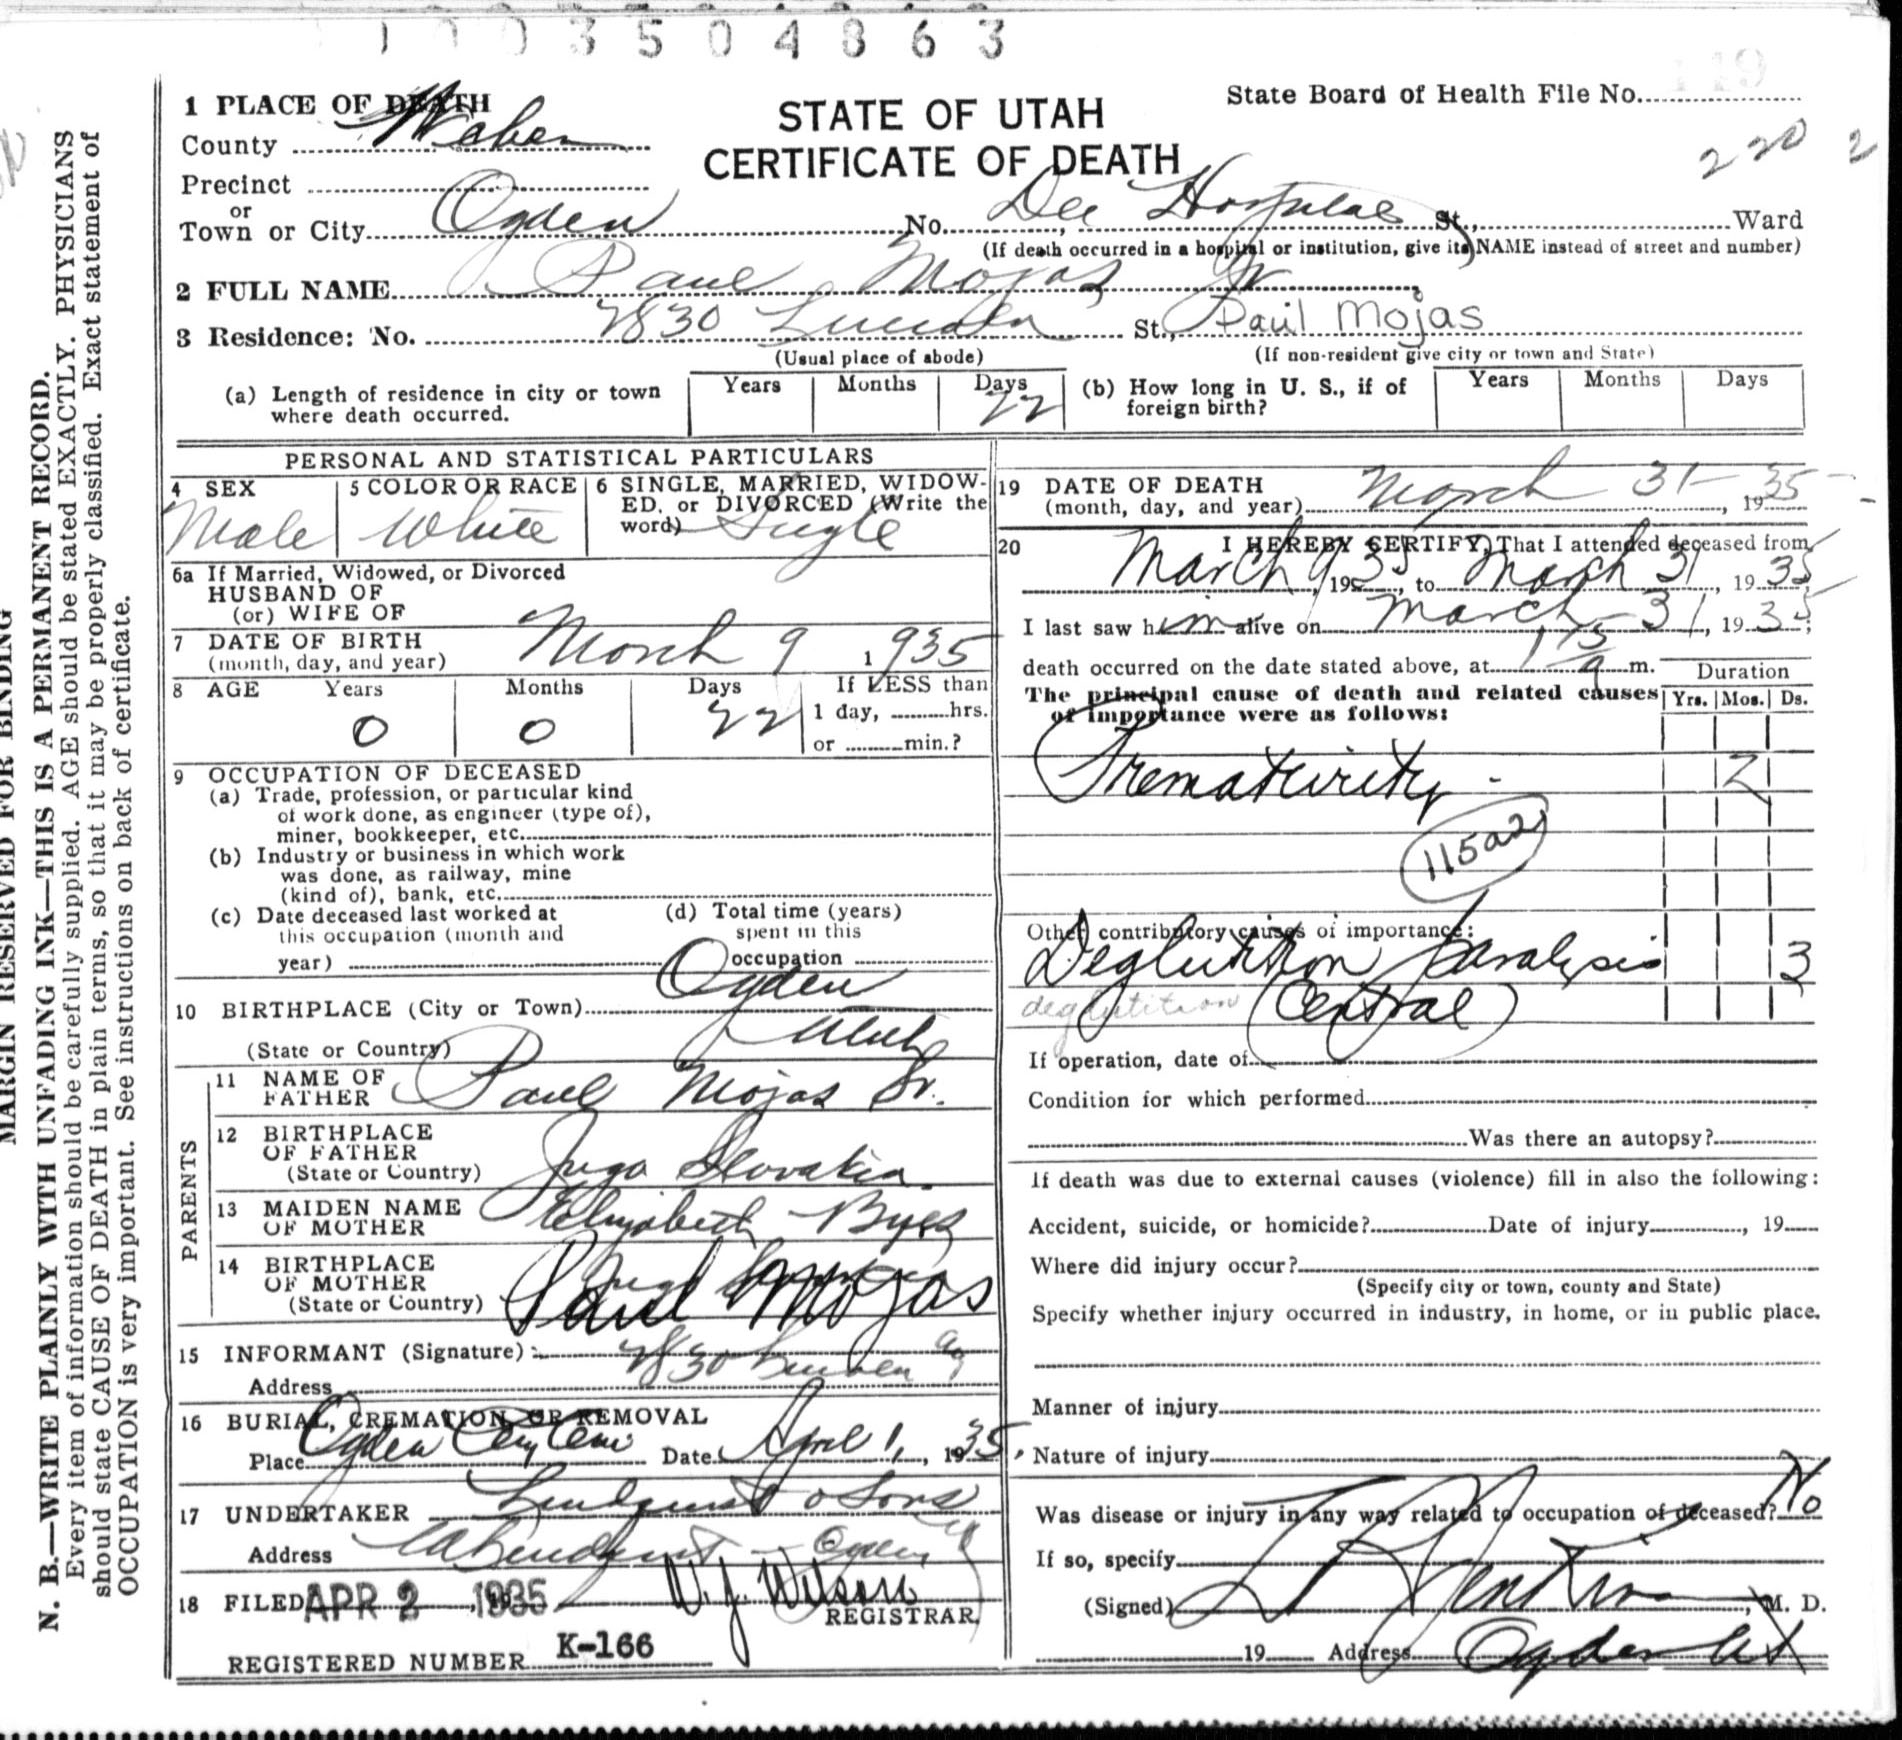 1003504863
1 PLACE OF DEATH
STATE OF UTAH
CERTIFICATE OF DEATH
State Board of Health File No.
220 2
County Weber
Precinct
or
Town or City Ogden No. Dee Hospital St., Ward
(If death occurred in a hospital or institution, give its NAME instead of street and number)
2 FULL NAME Paul Mojas Jr
3 Residence: No. 2830 St., Paul Mojas
(Usual place of abode) (If non-resident give city or town and State)
(a) Length of residence in city or town where death occurred. Years Months Days 22
(b) How long in U. S., if of foreign birth? Years Months Days
PERSONAL AND STATISTICAL PARTICULARS
4 SEX Male
5 COLOR OR RACE White
6 SINGLE, MARRIED, WIDOWED, or DIVORCED (Write the word) Single
6a If Married, Widowed, or Divorced
HUSBAND OF
(or) WIFE OF
7 DATE OF BIRTH
(month, day, and year) March 9 1935
8 AGE Years 0 Months 0 Days 22 If LESS than
1 day, hrs.
or min.?
9 OCCUPATION OF DECEASED
(a) Trade, profession, or particular kind
of work done, as engineer (type of),
miner, bookkeeper, etc.
(b) Industry or business in which work
was done, as railway, mine
(kind of), bank, etc.
(c) Date deceased last worked at
this occupation (month and
year)
(d) Total time (years)
spent in this
occupation
10 BIRTHPLACE (City or Town) Ogden
(State or Country) Utah
PARENTS
11 NAME OF
FATHER Paul Mojas Sr.
12 BIRTHPLACE
OF FATHER
(State or Country) Jugo Slovakia
13 MAIDEN NAME
OF MOTHER Elizabeth
14 BIRTHPLACE
OF MOTHER
(State or Country) Jugo
15 INFORMANT (Signature) Paul Mojas
Address 2830
16 BURIAL, CREMATION, OR REMOVAL
Place Ogden Date April 1, 1935
17 UNDERTAKER Lindquist & Sons
Address Ogden
18 FILED APR 2 1935 W. J. Wilson
REGISTRAR
REGISTERED NUMBER K-166
19 DATE OF DEATH
(month, day, and year) March 31 - 1935
20 I HEREBY CERTIFY, That I attended deceased from
March 9, 1935, to March 31, 1935
I last saw him alive on March 31, 1935;
death occurred on the date stated above, at 1 15 a m.
Duration
The principal cause of death and related causes
of importance were as follows: Yrs. Mos. Ds.
Prematurity - 2
115a2
Other contributory causes of importance:
Deglutition paralysis 3
deglutition (Central)
If operation, date of
Condition for which performed
Was there an autopsy?
If death was due to external causes (violence) fill in also the following:
Accident, suicide, or homicide? Date of injury, 19
Where did injury occur?
(Specify city or town, county and State)
Specify whether injury occurred in industry, in home, or in public place.
Manner of injury
Nature of injury
Was disease or injury in any way related to occupation of deceased? No
If so, specify
(Signed) M. D.
19 Address Ogden Ut
MARGIN RESERVED FOR BINDING
N. B.—WRITE PLAINLY WITH UNFADING INK—THIS IS A PERMANENT RECORD.
Every item of information should be carefully supplied. AGE should be stated EXACTLY. PHYSICIANS
should state CAUSE OF DEATH in plain terms, so that it may be properly classified. Exact statement of
OCCUPATION is very important. See instructions on back of certificate.